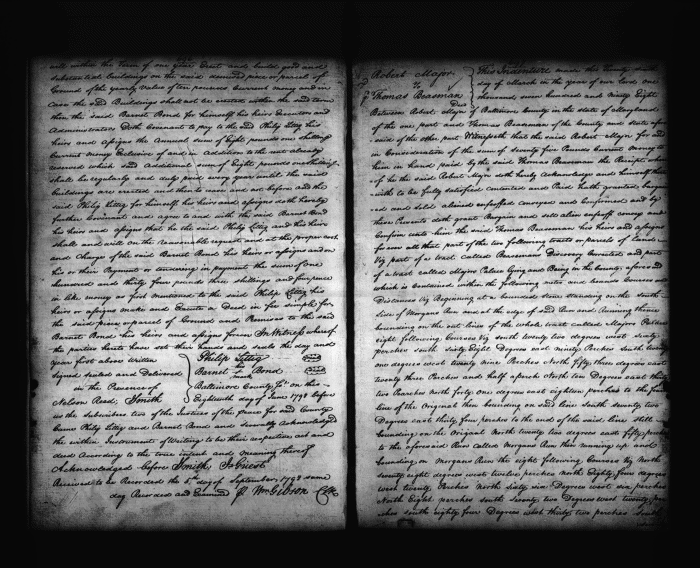 will within the term of one year erect and build good and
substantial buildings on the said demised piece or parcel of
Ground of the yearly Value of ten pounds Current money and in
case the said Buildings shall not be erected within the said term
then the said Barnet Bond for himself his heirs Executors and
Administrators doth Covenant to pay to the said Philip Littig his
heirs and assigns the Annual sum of Eight pounds six shillings
Current money Exclusive of and in addition to the rent already
reserved which said additional sum of Eight pounds
shall be regularly and duly paid every year until the said
buildings are erected and then to cease and not before and the
said Philip Littig for himself his heirs and assigns doth hereby
further Covenant and agree to and with the said Barnet Bond
his heirs and assigns that he the said Philip Littig and his heirs
shall and will on the reasonable request and at the proper cost
and Charge of the said Barnet Bond his heirs or assigns and on
his or their Payment or tendering in payment the sum of one
hundred and thirty four pounds three shillings and four pence
in like money as first mentioned to the said Philip Littig his
heirs or assigns make and Execute a Deed in fee simple for
the said piece or parcel of Ground and Premises to the said
Barnet Bond his heirs and assigns forever In Witness whereof
the parties hereto have set their hands and seals the day and
year first above written
Philip Littig
Signed sealed and Delivered
Barnet Bond
in the Presence of
Baltimore County Ss. on this
Nelson Read, Smith
Eighteenth day of June 1798 before
us the Subscribers two of the Justices of the peace for said County
Came Philip Littig and Barnet Bond and severally Acknowledged
the within Instrument of Writing to be their respective act and
deed According to the true intent and meaning thereof
Acknowledged before Smith, Js Guest
Received to be Recorded the 5th day of September 1798 same
day Recorded and Examined Wm Gibson Clk
Robert Major
to
Thomas Beasman
Deed
This Indenture made this twenty
day of March in the year of our Lord one
thousand seven hundred and ninety Eight
Between Robert Major of Baltimore County in the state of Maryland
of the one part and Thomas Beasman of the County and state afore
said of the other part Witnesseth that the said Robert Major for and
in Consideration of the sum of seventy five Pounds Current money to
him in hand paid by the said Thomas Beasman the Receipt where
of he the said Robert Major doth hereby acknowledge and himself there
with to be fully satisfied contented and Paid hath granted bargain
ed and sold aliened enfeoffed conveyed and Confirmed and by
these Presents doth grant Bargain and sell alien enfeoff convey and
Confirm unto him the said Thomas Beasman his heirs and assigns
forever all that part of the two following tracts or parcels of Land
Viz part of a tract called Beasmans Discovery Corrected and part
of a tract called Majors Palace lying and Being in the County aforesaid
which is Contained within the following metes and bounds Courses and
Distances Viz Beginning at a bounded stone standing on the south
side of Morgans Run and at the edge of said Run and Running thence
bounding on the out lines of the whole tract called Majors Palace
following Courses Viz south twenty two degrees west sixty
perches south sixty Eight Degrees east ninety Perches South
one degrees west twenty nine Perches North fifty three degrees east
twenty three Perches and half a perch North ten Degrees east thirty
two Perches north forty one degrees east eighteen perches to the
line of the Original then bounding on said line South seventy two
Degrees east thirty four perches to the end of the said line still
bounding on the Original North twenty two degrees east fifty perches
to the aforesaid Run called Morgans Run then running up and
bounding on Morgans Run the eight following Courses Viz North
seventy eight degrees west twelve perches north Eighty four degrees
west twenty Perches North sixty six Degrees west six perches
North Eight perches south seventy two Degrees west twenty
ches south eighty four Degrees west thirty two perches South